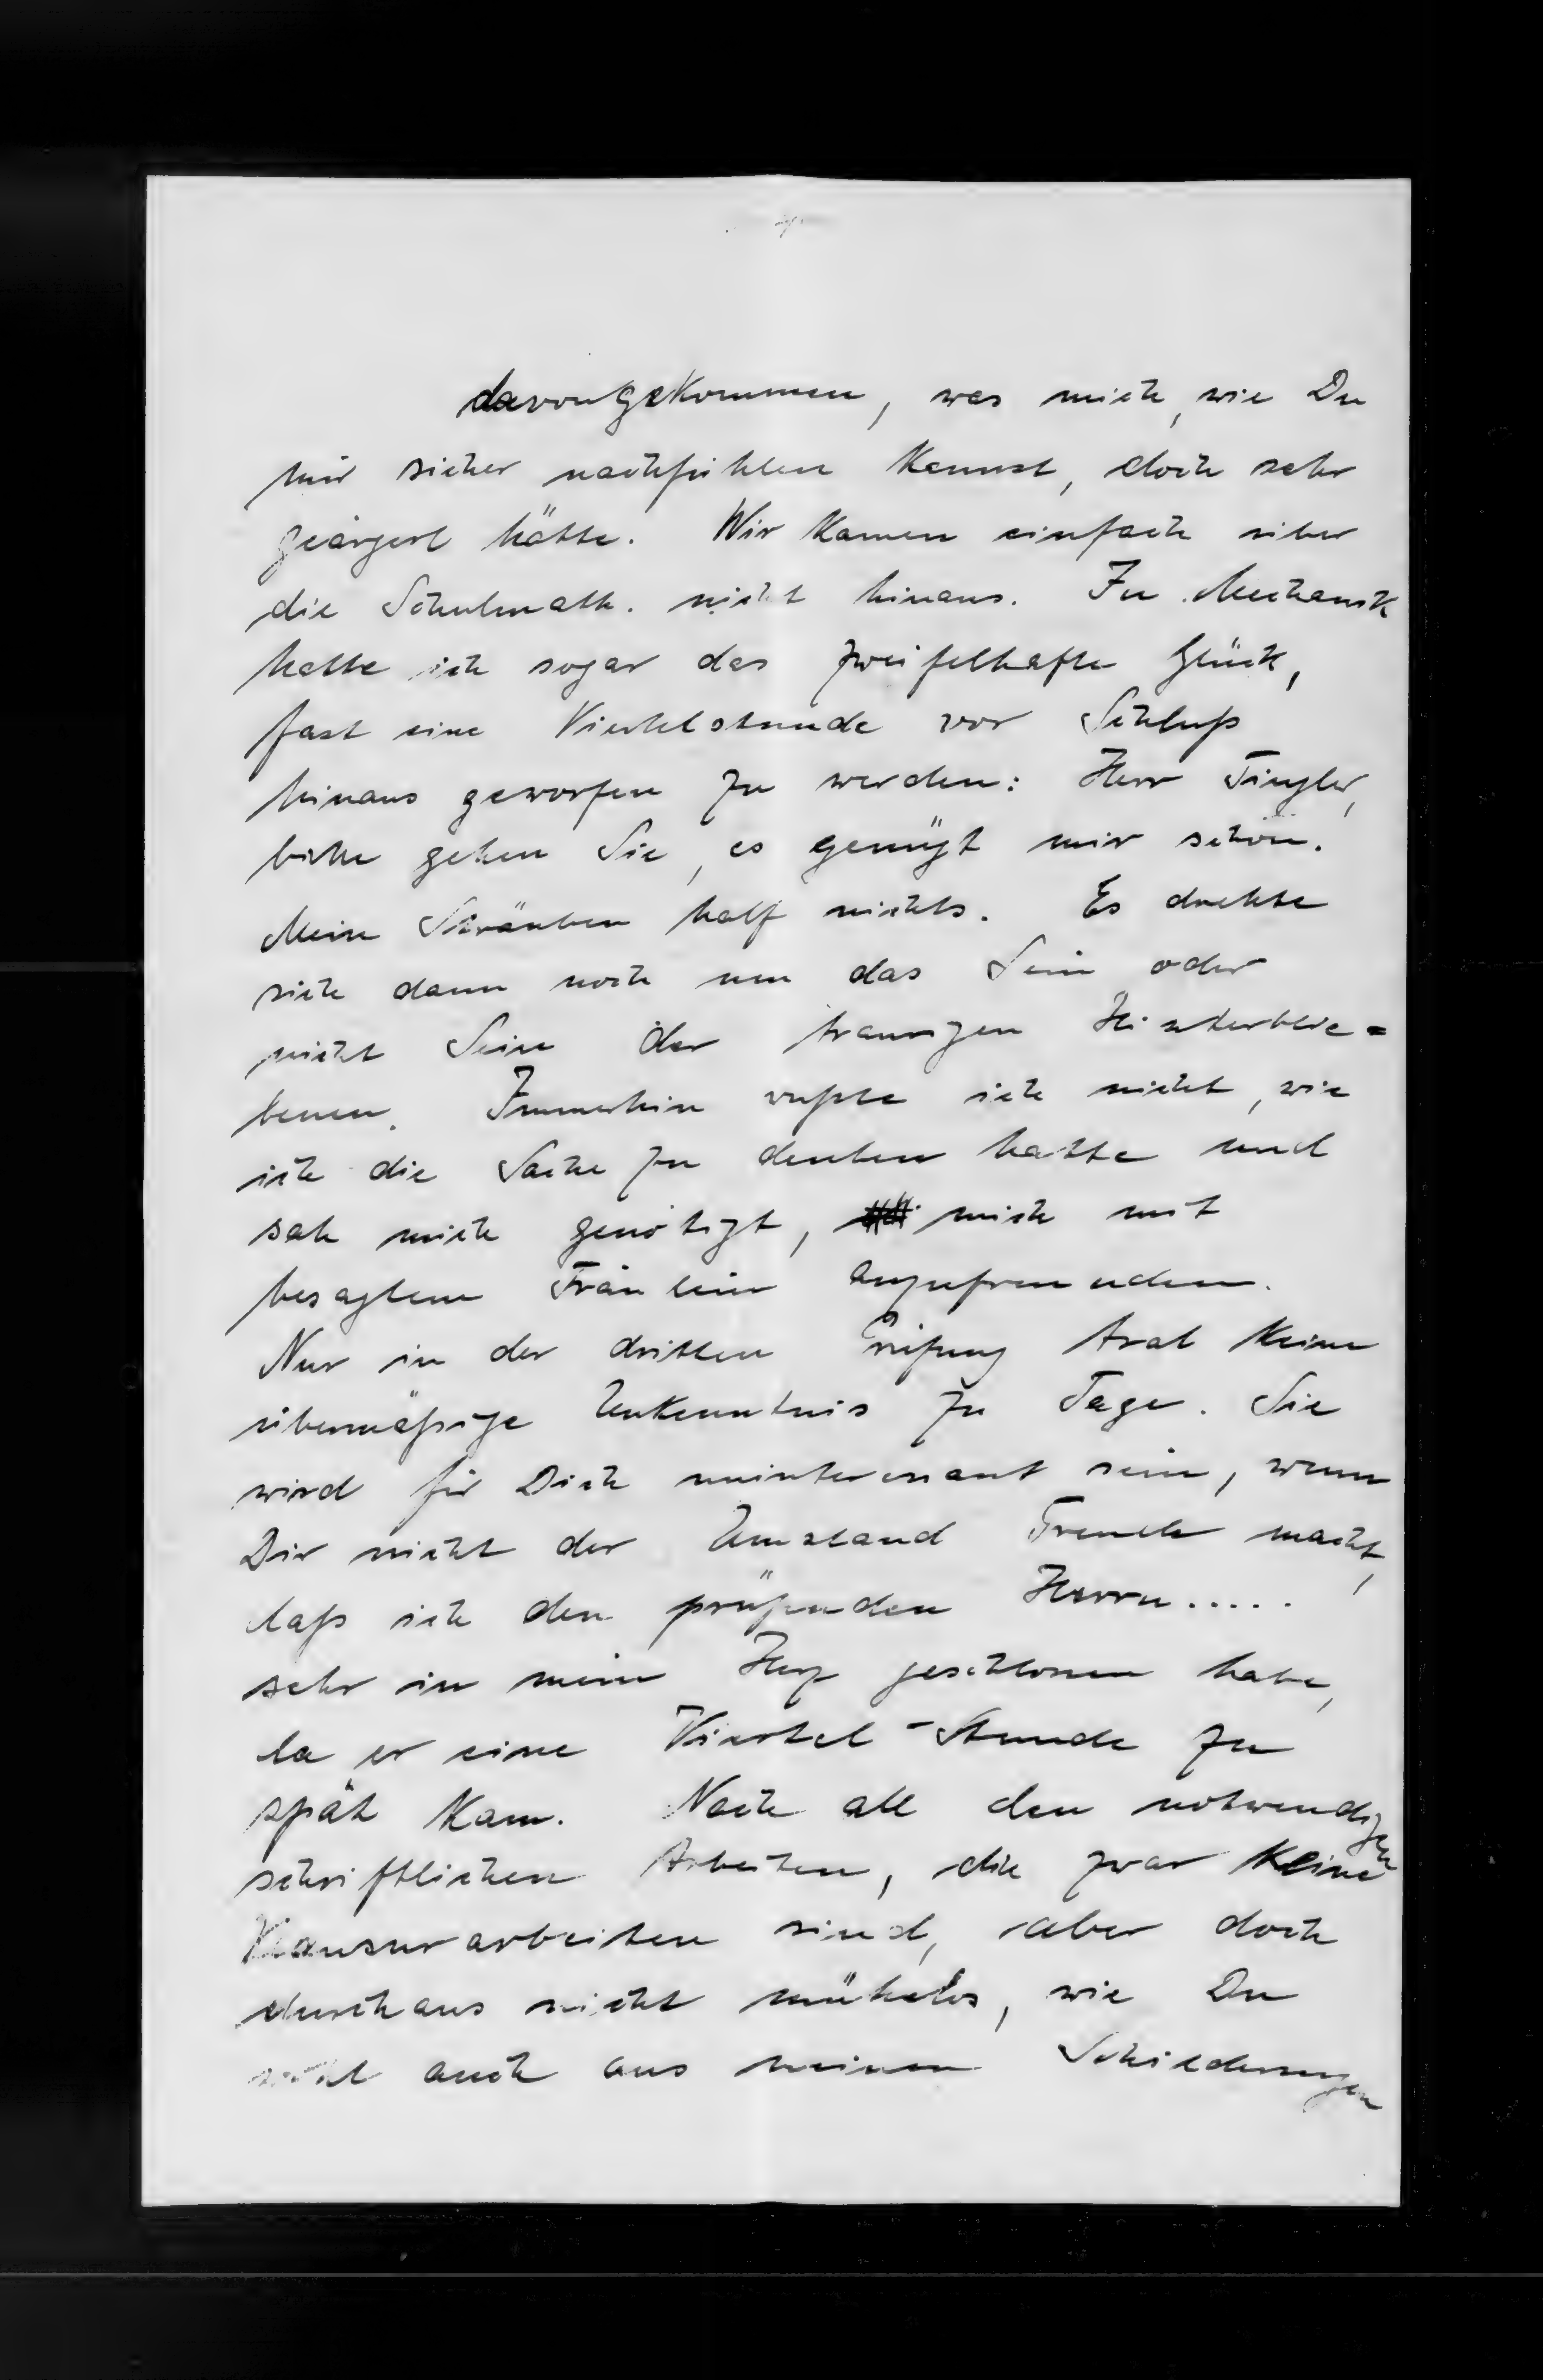 davongekommen, was mich, wie Du
mir sicher nachfühlen kannst, doch sehr
geärgert hätte. Wir kamen einfach über
die Schulmath. nicht hinaus. In Mechanik
hatte ich sogar das zweifelhafte Glück,
fast eine Viertelstunde vor Schluß
hinaus geworfen zu werden: Herr Tingler,
bitte gehen Sie, es genügt mir schon.
Mein Sträuben half nichts. Es drehte
sich dann noch um das Sein oder
nicht Sein der traurigen Hinterblie=
benen. Immerhin wußte ich nicht, wie
ich die Sache zu deuten hatte und
sah mich genötigt, mich mit
besagtem Fräulein anzufreunden.
Nur in der dritten Prüfung trat keine
übermäßige Unkenntnis zu Tage. Sie
wird für Dich uninteressant sein, wenn
Dir nicht der Umstand Freude macht,
daß ich den prüfenden Herrn.....
sehr in mein Herz geschlossen habe,
da er eine Viertel-Stunde zu
spät kam. Nach all den notwendigen
schriftlichen Arbeiten, die zwar keine
Klausurarbeiten sind, aber doch
durchaus nicht mühelos, wie Du
wohl auch aus meinen Schilderungen